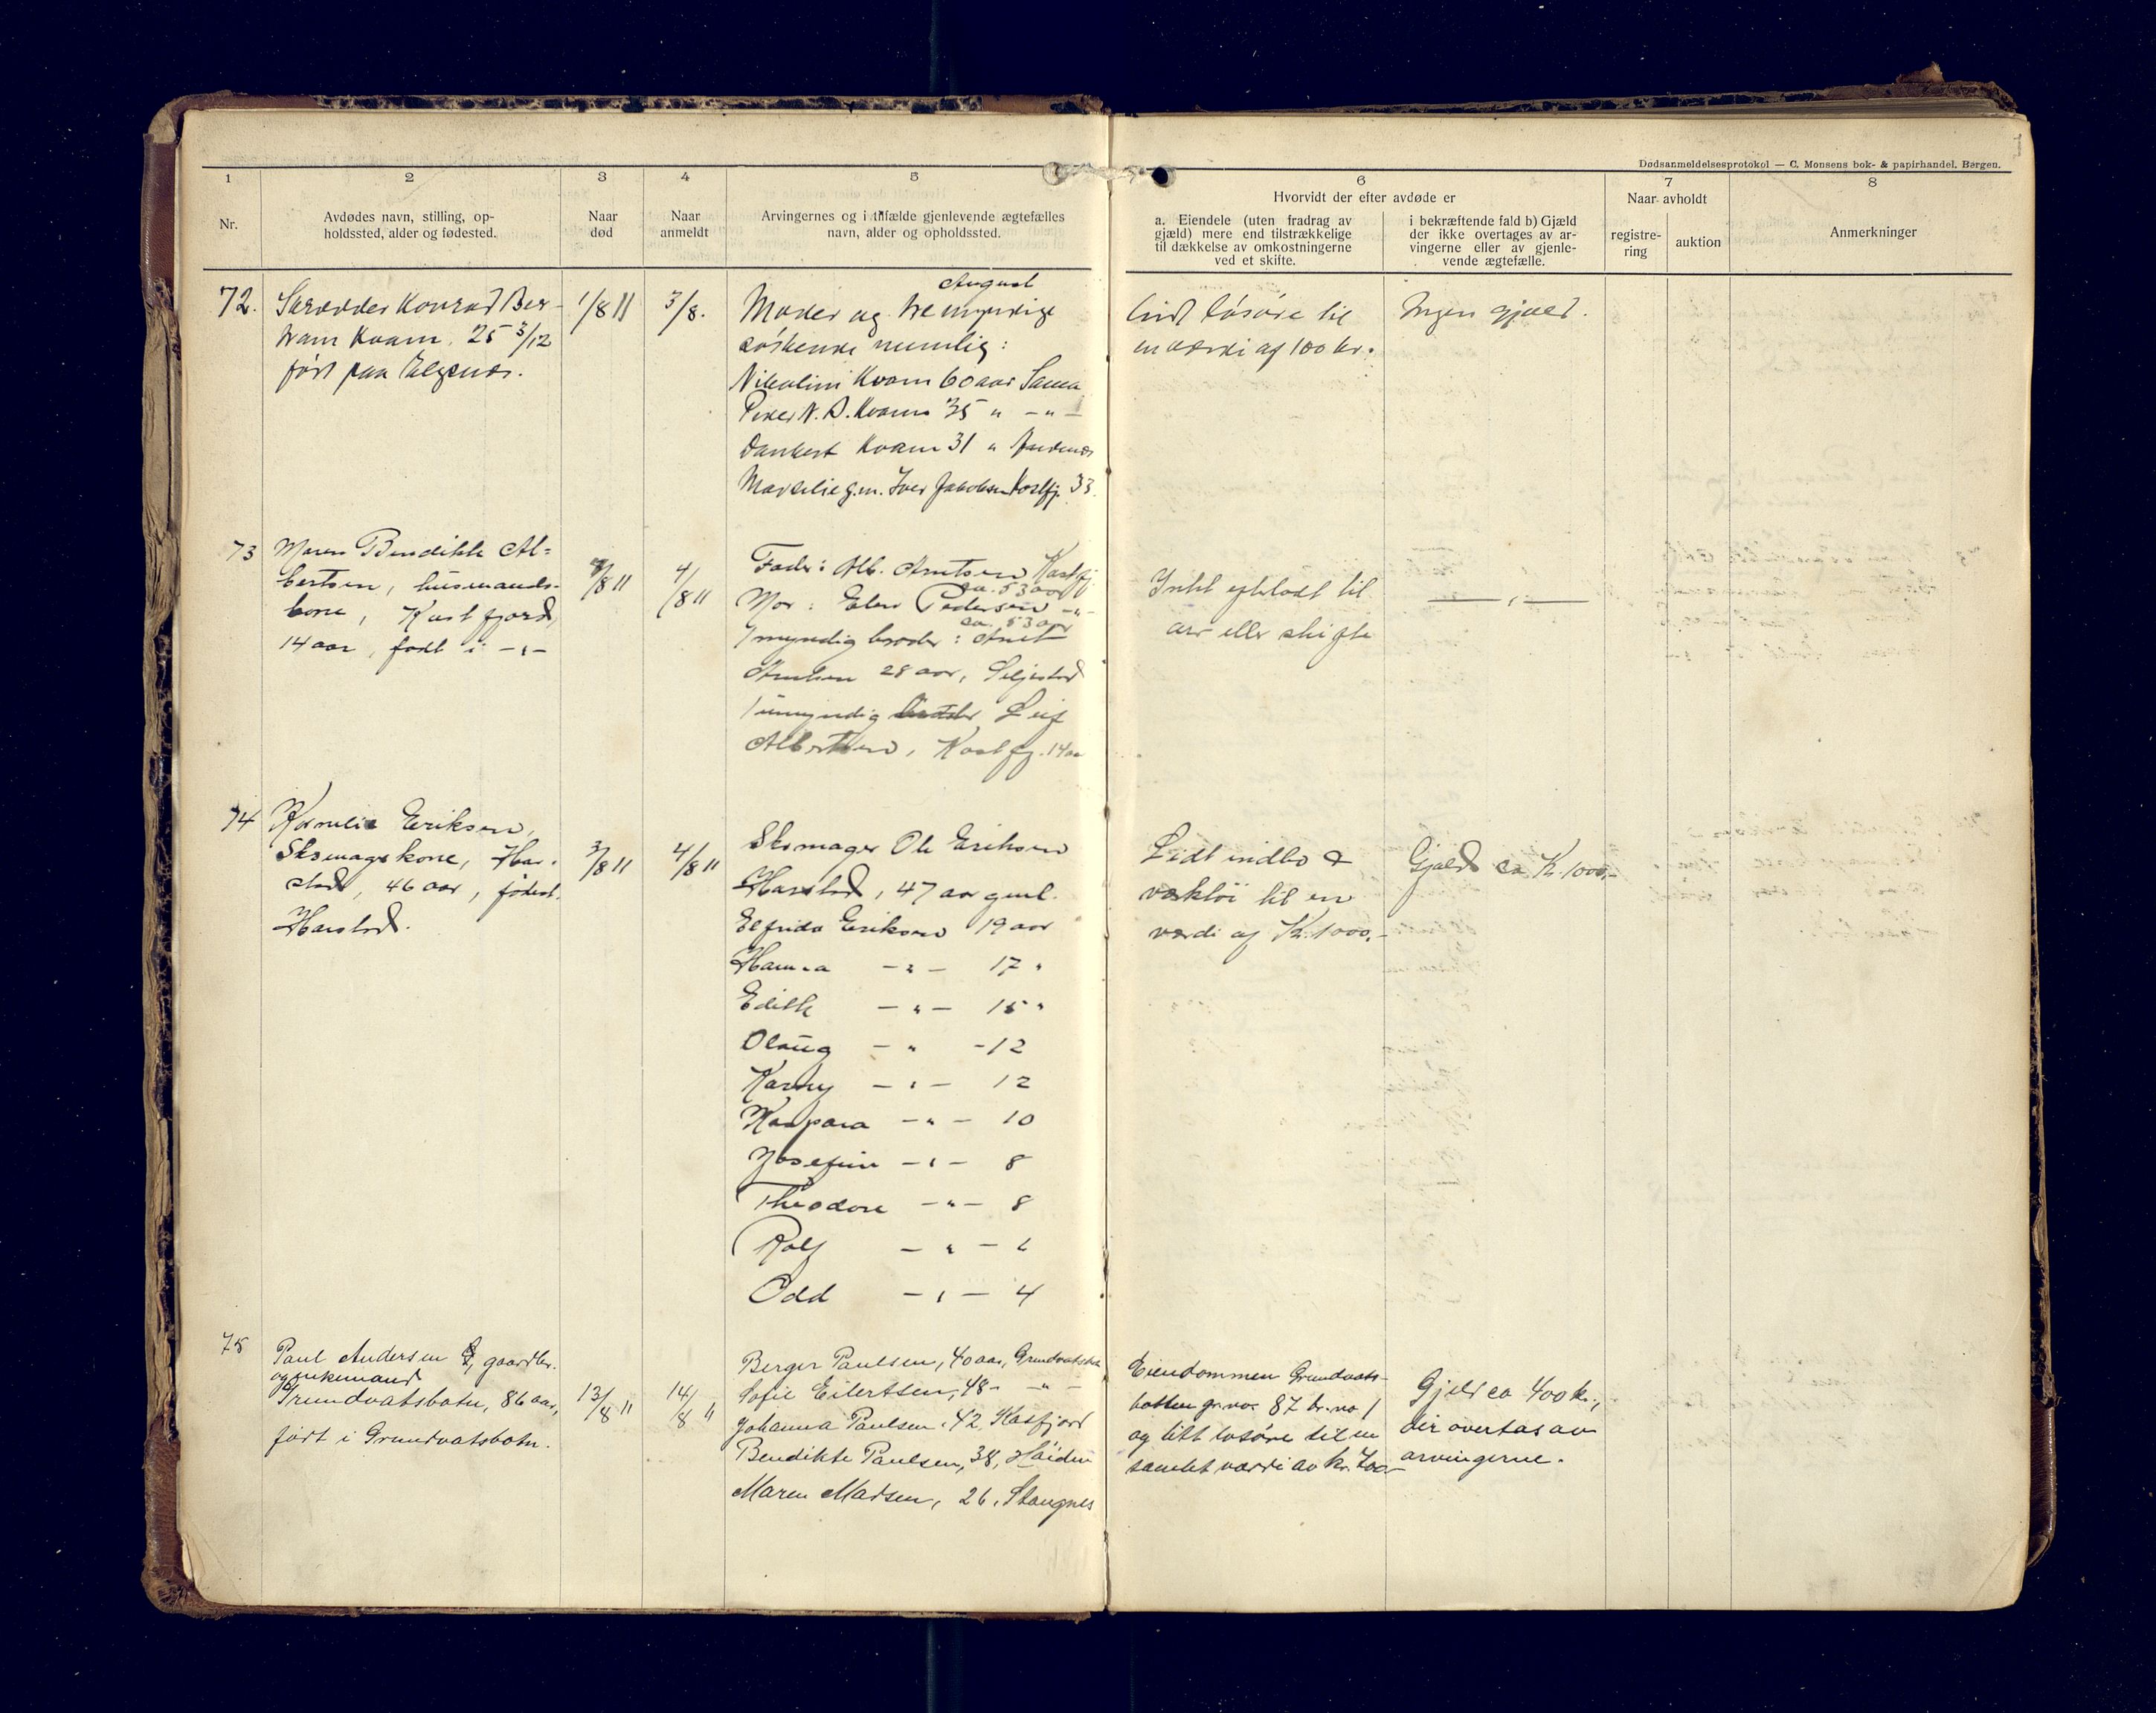 Dødsanmeldelsesprotokol — C. Monsens bok- & papirhandel, Bergen.
1 2 3 4 5 6 7 8
Nr.
Avdødes navn, stilling, op-
holdssted, alder og fødested.
Naar
død
Naar
anmeldt
Arvingernes og i tilfælde gjenlevende ægtefælles
navn, alder og opholdssted.
Hvorvidt der efter avdøde er
a. Eiendele (uten fradrag av
gjæld) mere end tilstrækkelige
til dækkelse av omkostningerne
ved et skifte.
i bekræftende fald b) Gjæld
der ikke overtages av ar-
vingerne eller av gjenle-
vende ægtefælle.
Naar avholdt
registre-
ring
auktion
Anmerkninger
August
72.
Skrædder Konrad Ber-
tram Kvam. 25 3/12
født paa Elgenæs.
1/8 11
3/8.
Moder og tre myndige
søskende nemlig:
Nikoline Kvam 60 aar Sama
Peder N. A. Kvam 35 " -"-
Dankert Kvam 31 "
g.m. Iver Jakobsen Kastfj. 33.
Lidt løsøre til
en værdi af 100 kr.
Ingen gjæld.
73
Maren Bendikte Al=
bertsen, husmands-
kone, Kastfjord,
14 aar, født i -"-
/8 11
4/8 11
Fader: Alb. Arntsen Kastfj.
ca. 53 aar
Mor: Elen Pedersen -"-
ca. 53 aar
1 myndig broder: Arnt
Arntsen 28 aar, Seljestad
1 umyndig broder Leif
Albertsen, Kastfj. 14 aa
Intet efterladt til
arv eller skifte
— " —
74
Kornelia Eriksen,
Skomagerkone, Har-
stad, 46 aar, fødest.
Harstad.
3/8 11
4/8 11
Skomager Ole Eriksen
Harstad, 47 aar gml.
Elfrida Eriksen 19 aar
Hanna -"- 17 "
Edith -"- 15 "
Olaug - " -12
Karny -"- 12
Kaspara -"- 10
Josefine -"- 8
Theodore -"- 8
Rolf -"- 6
Odd -"- 4
Lidt indbo &
værktøi til en
værdi af Kr. 1000,-
Gjæld ca Kr. 1000,-
75
Paul Andersen , gaardbr.
og enkemand
Grundvatsbotn, 86 aar,
født i Grundvatsbotn.
13/8 11
14/8 11
Berger Paulsen, 40 aar, Grundvatsbotn
Sofie Eilertsen, 48 - " -
Johanna Paulsen, 42, Kasfjord
Bendikte Paulsen, 38, Höiden
Maren Madsen, 26, Stangnes
Eiendommen Grundvats-
botten gr.no. 87 br.no 1
og litt løsøre til en
samlet værdi av kr. 700-
Gjeld ca 400 kr.,
der overtas av
arvingerne.